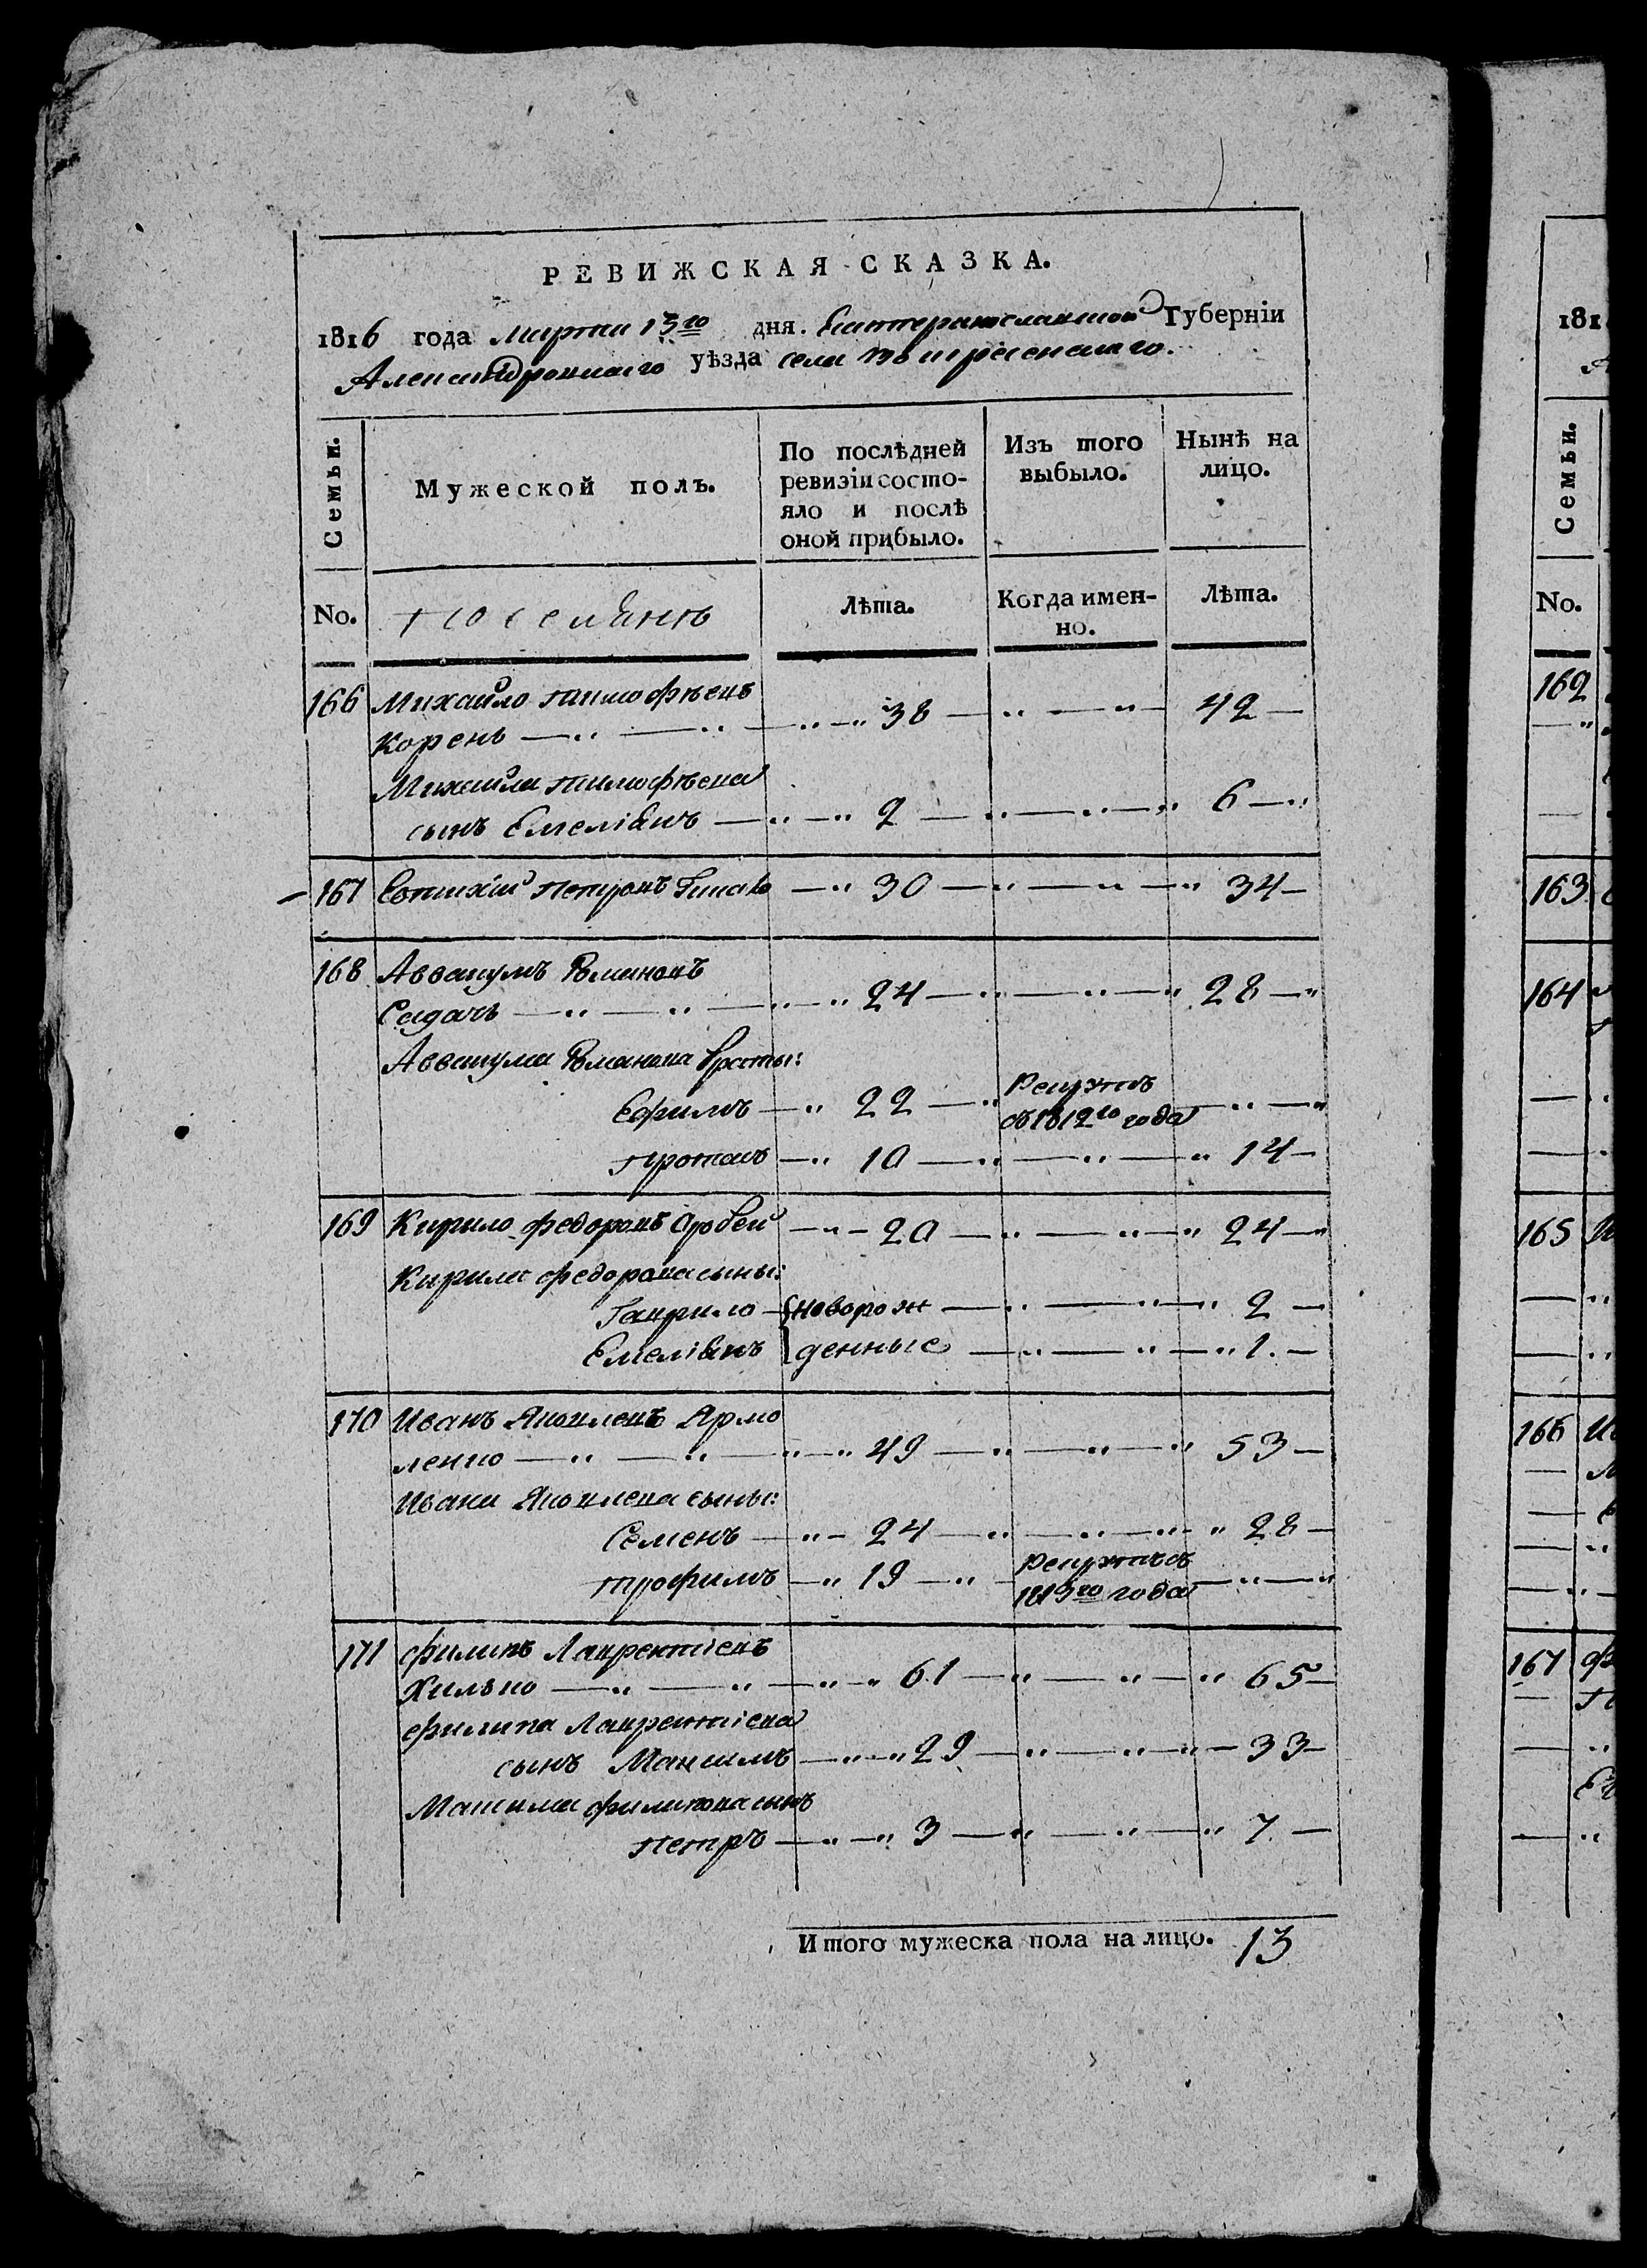 РЕВИЖСКАЯ СКАЗКА.
1816 года Марта 13го дня. Екатеринославской Губернiи
Александровскаго уѣзда села
Семьи.
Мужеской полъ.
По послѣдней
ревизiи состо-
яло и послѣ
оной прибыло.
Изъ того
выбыло.
Нынѣ на
лицо.
No.
Поселянъ
Лѣта.
Когда имен-
но.
Лѣта.
166 Михайло Тимофѣевъ
Корень — 38 — 42 —
Михайла Тимофѣева
сынъ Емелiянъ — 2 — 6 —
167 Евтихiй Петровъ — 30 — 34 —
168 Аввакумъ Романовъ
— 24 — 28 —
Аввакума Романова браты:
Ефимъ — 22 — Рекрутъ
съ 1812го года
— 10 — 14 —
169 Кирило Федоровъ — 20 — 24 —
Кирила Федорова сыны:
Гаврило — новорож — 2 —
Емелiянъ денные — 1. —
170 Иванъ Яковлевъ Ярмо
ленко — 49 — 53 —
Ивана Яковлева сыны:
Семенъ — 24 — 28 —
Трофимъ — 19 — Рекрутъ съ
года
171 Филипъ Лаврентiевъ
Хилько — 61 — 65 —
Филипа Лаврентiева
сынъ Максимъ — 29 — 33 —
Максима Филипова сынъ
Петръ — 3 — 7. —
Итого мужеска пола на лицо. 13
181
Семьи.
No.
162
163
164
165
166
167